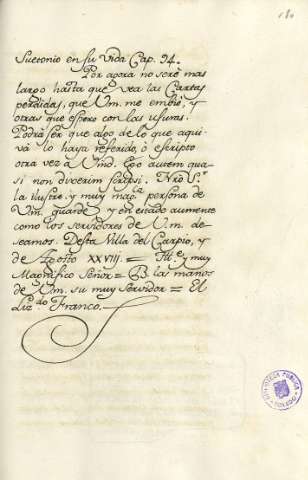 180
Suetonio en su vida Cap. 94.
Por agora no seré mas
largo hasta que vea las Cartas
perdidas, que Vm. me embió, y
otras que espero con las usuras.
Podrá ser que algo de lo que aqui
vá lo haya referido, ó escripto
otra vez a Vmd. Ego autem qua-
si non dixerim scripsi. Nrō Sr.
la Ilustre, y muy mag.ca persona de
Vm. guarde, y en estado aumente
como los servidores de V.m. de-
seamos. Desta Villa del Carpio, y
de Agosto XXVIII. = Ill.e y muy
Magnifico Señor = B. las manos
de Vm. su muy servidor = El
Liz.do Franco.
BIBLIOTECA PUBLICA
TOLEDO